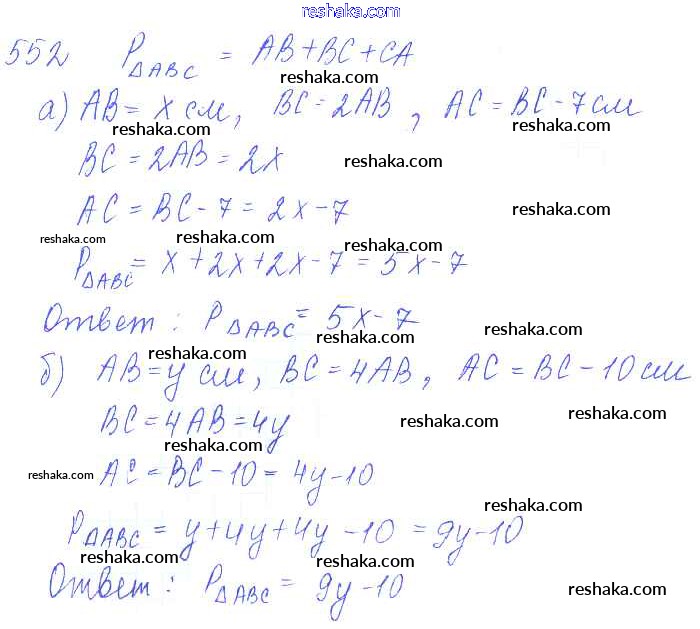 reshaka.com
552 P△ABC = AB+BC+CA
reshaka.com reshaka.com
а) AB = x см, BC = 2AB, AC = BC - 7 см
reshaka.com reshaka.com
BC = 2AB = 2x
reshaka.com
AC = BC - 7 = 2x - 7
reshaka.com
reshaka.com reshaka.com reshaka.com
P△ABC = x + 2x + 2x - 7 = 5x - 7
Ответ: P△ABC = 5x - 7
reshaka.com reshaka.com
reshaka.com reshaka.com
б) AB = y см, BC = 4AB, AC = BC - 10 см
BC = 4AB = 4y
reshaka.com reshaka.com
reshaka.com
reshaka.com
AC = BC - 10 = 4y - 10
reshaka.com
P△ABC = y + 4y + 4y - 10 = 9y - 10
reshaka.com reshaka.com
Ответ: P△ABC = 9y - 10
reshaka.com
reshaka.com reshaka.com